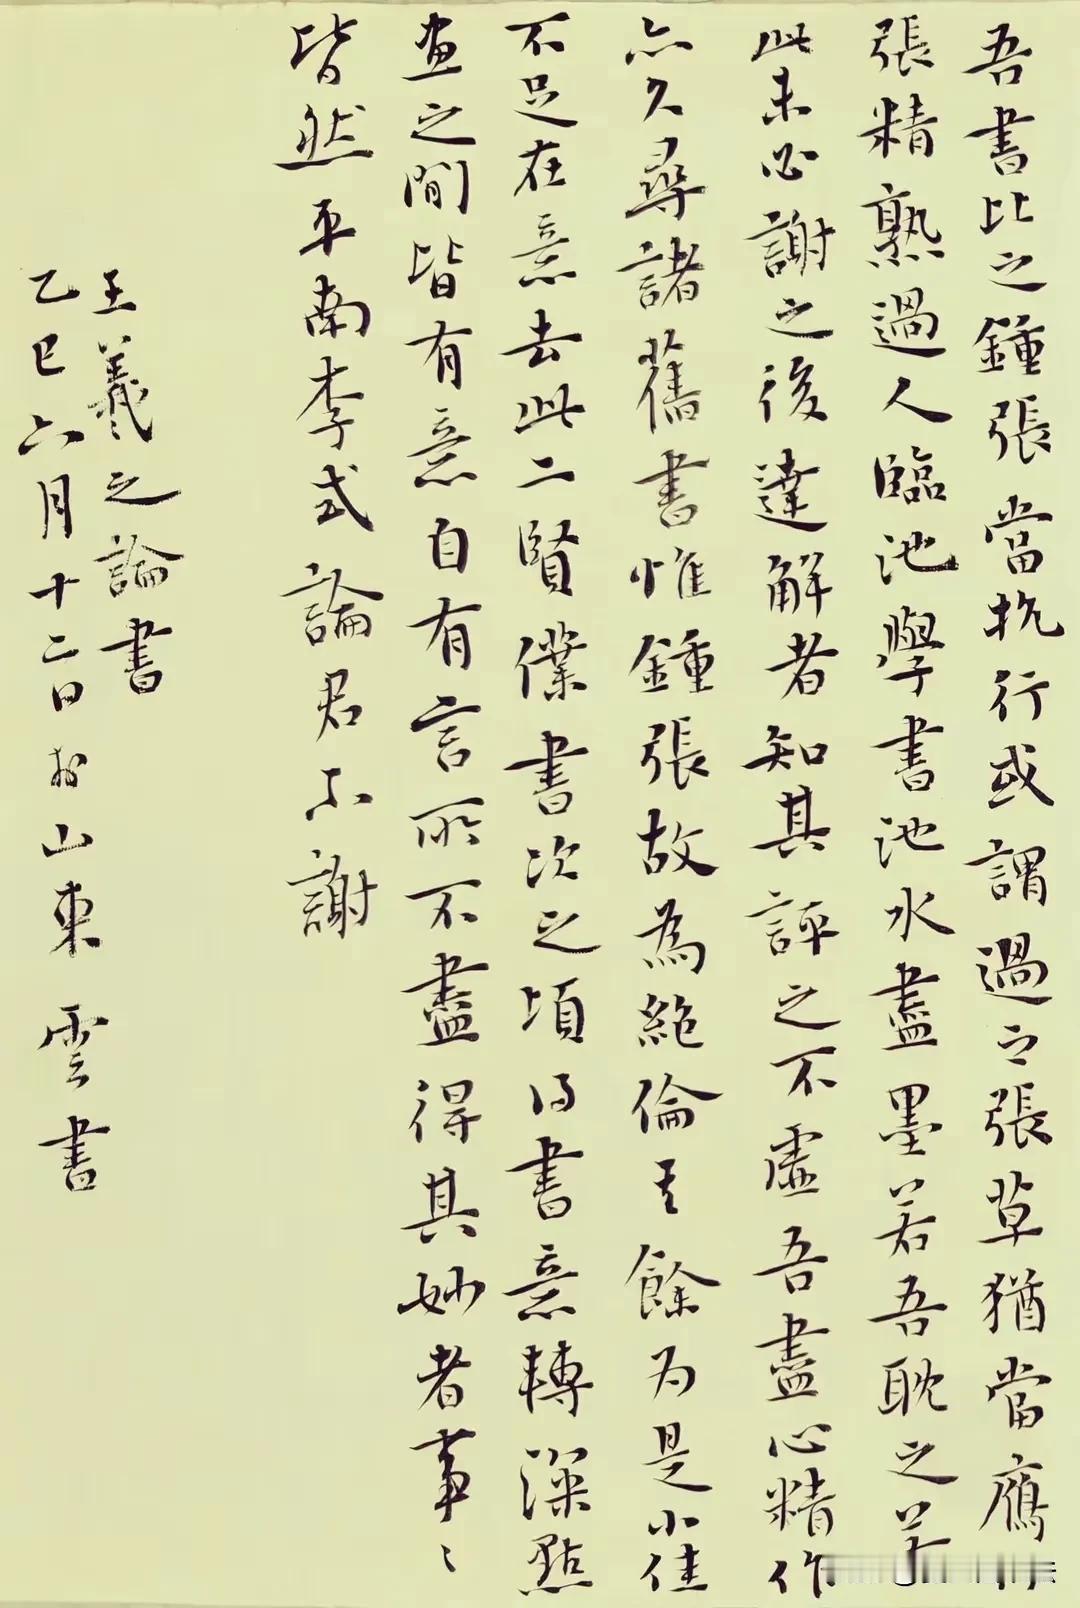 吾書比之鍾張當抗行或謂過之張草猶當鴈行
張精熟過人臨池學書池水盡墨若吾耽之若
此未必謝之後達解者知其評之不虛吾盡心精作
亦久尋諸舊書惟鍾張故為絕倫其餘为是小佳
不足在意去此二賢僕書次之頃得書意轉深點
畫之間皆有意自有言所不盡得其妙者事〻
皆然平南李式論君不謝
王羲之論書
乙巳六月十二日於山東 雲書